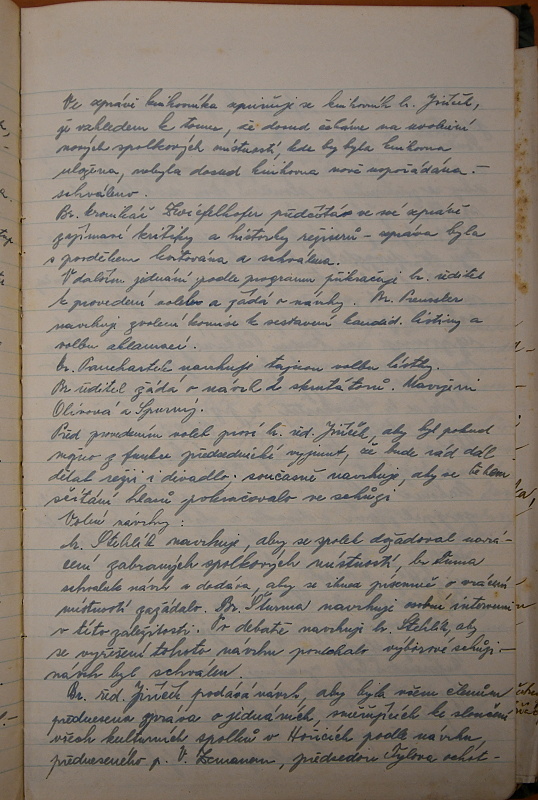 Ve zprávě knihovníka zpravuje se knihovník br. Jirček,
že vzhledem k tomu, že dosud čekáme na uvolnění
nových spolkových místností, kde by byla knihovna
uložena, nebyla dosud knihovna nově uspořádána. -
schváleno.
Br. kronikář Zwiefelhofer předčítá ve své zprávě
zajímavé kritiky a historky režisérů - zpráva byla
s povděkem kvitována a schválena.
V dalším jednání podle programu přikračuje br. ředitel
k provedení voleb a žádá o návrhy. Br. Preussler
navrhuje zvolení komise k sestavení kandid. listiny a
volbu aklamací.
Br. Pauchartek navrhuje tajnou volbu lístky.
Br ředitel žádá o návrh 2 skrutátorů. Navrženi
Olivova a Spurný.
Před provedením voleb prosí br. řed. Jirček, aby byl pokud
možno z funkce předsednické vyjmut, že bude rád dál
dělat režii i divadlo. současně navrhuje, aby se během
sčítání hlasů pokračovalo ve schůzi
Volné návrhy:
br. Stehlík navrhuje, aby se spolek dožadoval navrá-
cení zabraných spolkových místností, br Šturma
schvaluje návrh a dodává, aby se ihned písemně o vrácení
místností zažádalo. Br. Šturma navrhuje osobní intervenci
v této záležitosti. Po debatě navrhuje br. Stehlík, aby
se vyřešení tohoto návrhu ponechalo výborové schůzi -
návrh byl schválen.
Br. řed. Jirček podává návrh, aby byla všem členům
přednesena zpráva o jednáních, směřujících ke sloučení
všech kulturních spolků v Hořicích podle návrhu
předneseného p. V. Zemanem, předsedou Tylova ochot-